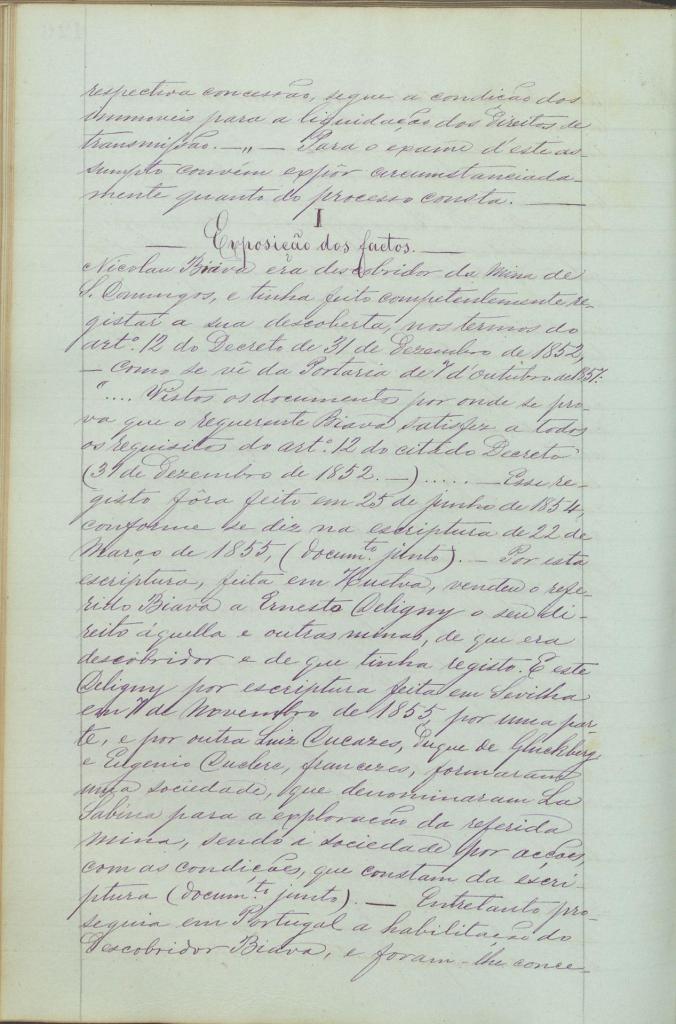 respectiva concessão, segue a condição dos
immoveis para a liquidação dos Direitos de
transmissão. — „ — Para o exame d'este as-
sumpto convém expôr circumstanciada-
mente quanto do processo consta. —
I
— Exposição dos factos. —
Nicolau Biava era descobridor da Mina de
S. Domingos, e tinha feito competentemente re-
gistar a sua descoberta, nos termos do
artº. 12 do Decreto de 31 de Dezembro de 1852,
— como se vê da Portaria de 7 d'Outubro de 1857:
".... Vistos os documentos por onde se pro-
va que o requerente Biava satisfez a todos
os requisitos do artº. 12 do citado Decreto"
(31 de Dezembro de 1852. —) ..... — Esse re-
gisto fôra feito em 25 de Junho de 1854,
conforme se diz na escriptura de 22 de
Março de 1855, (docum.to junto). — Por esta
escriptura, feita em Huelva, vendeu o refe-
rido Biava a Ernesto Deligny o seu di-
reito áquella e outras minas, de que era
descobridor e de que tinha registo. E este
Deligny por escriptura feita em Sevilha
em de Novembro de 1855, por uma par-
te, e por outra Luiz Ducazes, Duque de Glucksberg
e Eugenio Duclerc, francezes, formaram
uma sociedade, que denominaram La
Sabina para a exploração da referida
mina, sendo a sociedade por acções,
com as condições, que constam da escri-
ptura (docum.to junto). — Entretanto pro-
seguia em Portugal a habilitação do
Descobridor Biava, e foram-lhe conce-